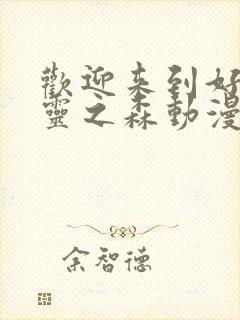 歡迎来到好
靈之森動漫
余智德